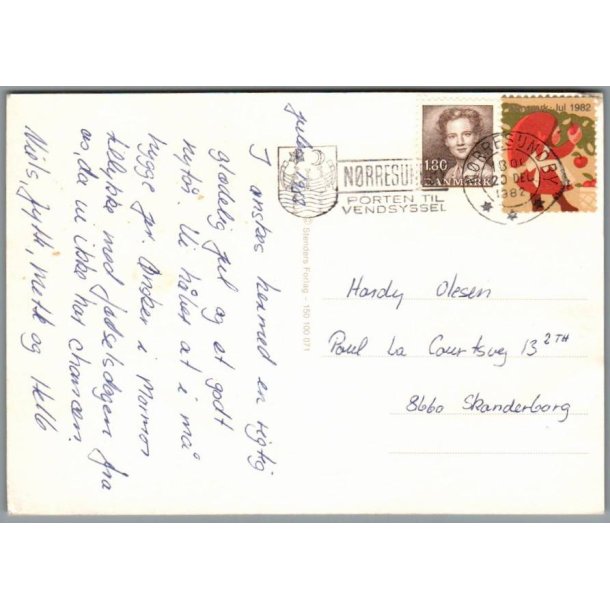 Julen 1982
I ønskes hermed en rigtig
glædelig jul og et godt
nytår. Vi håber at i må
hygge jer. Ønsker i Mormor
tillykke med fødselsdagen fra
os, da vi ikke har chancen.
Niels, Jytte, Mette og Helle
1.80
DANMARK
Jul 1982
NØRRESUN
PORTEN TIL
VENDSYSSEL
NØRRESUNDBY
23 DEC
1982
Stenders Forlag – 150 100 071
Hardy Olesen
Poul La Coursvej 13 2TH
8660 Skanderborg